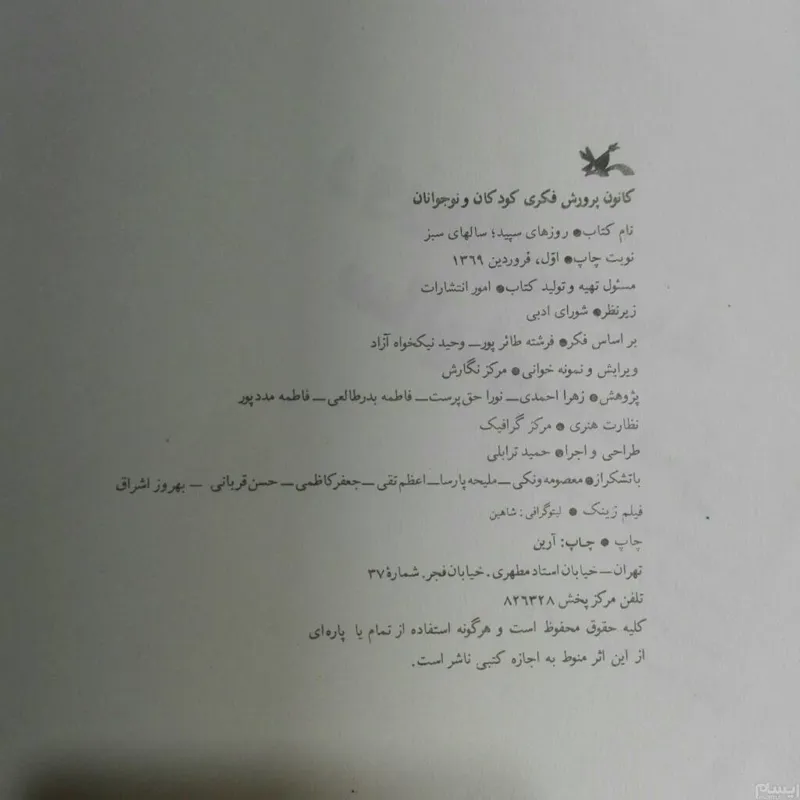 کانون پرورش فکری کودکان و نوجوانان
نام کتاب● روزهای سپید؛ سالهای سبز
نوبت چاپ● اوّل، فروردین ۱۳۶۹
مسئول تهیه و تولید کتاب● امور انتشارات
زیرنظر● شورای ادبی
بر اساس فکر● فرشته طائر پور_ وحید نیکخواه آزاد
ویرایش و نمونه خوانی● مرکز نگارش
پژوهش● زهرا احمدی_ نورا حق پرست_ فاطمه بدرطالعی_ فاطمه مددپور
نظارت هنری ● مرکز گرافیک
طراحی و اجرا● حمید ترابلی
باتشکراز● معصومه ونکی_ ملیحه پارسا_ اعظم تقی_ جعفرکاظمی_ حسن قربانی _ بهروز اشراق
فیلم زینک ● لیتوگرافی: شاهین
چاپ ● چاپ: آرین
تهران_ خیابان استاد مطهری. خیابان فجر. شمارهٔ ۳۷
تلفن مرکز پخش ۸۲۶۳۲۸
کلیه حقوق محفوظ است و هرگونه استفاده از تمام یا پاره‌ای
از این اثر منوط به اجازه کتبی ناشر است.
ایسام